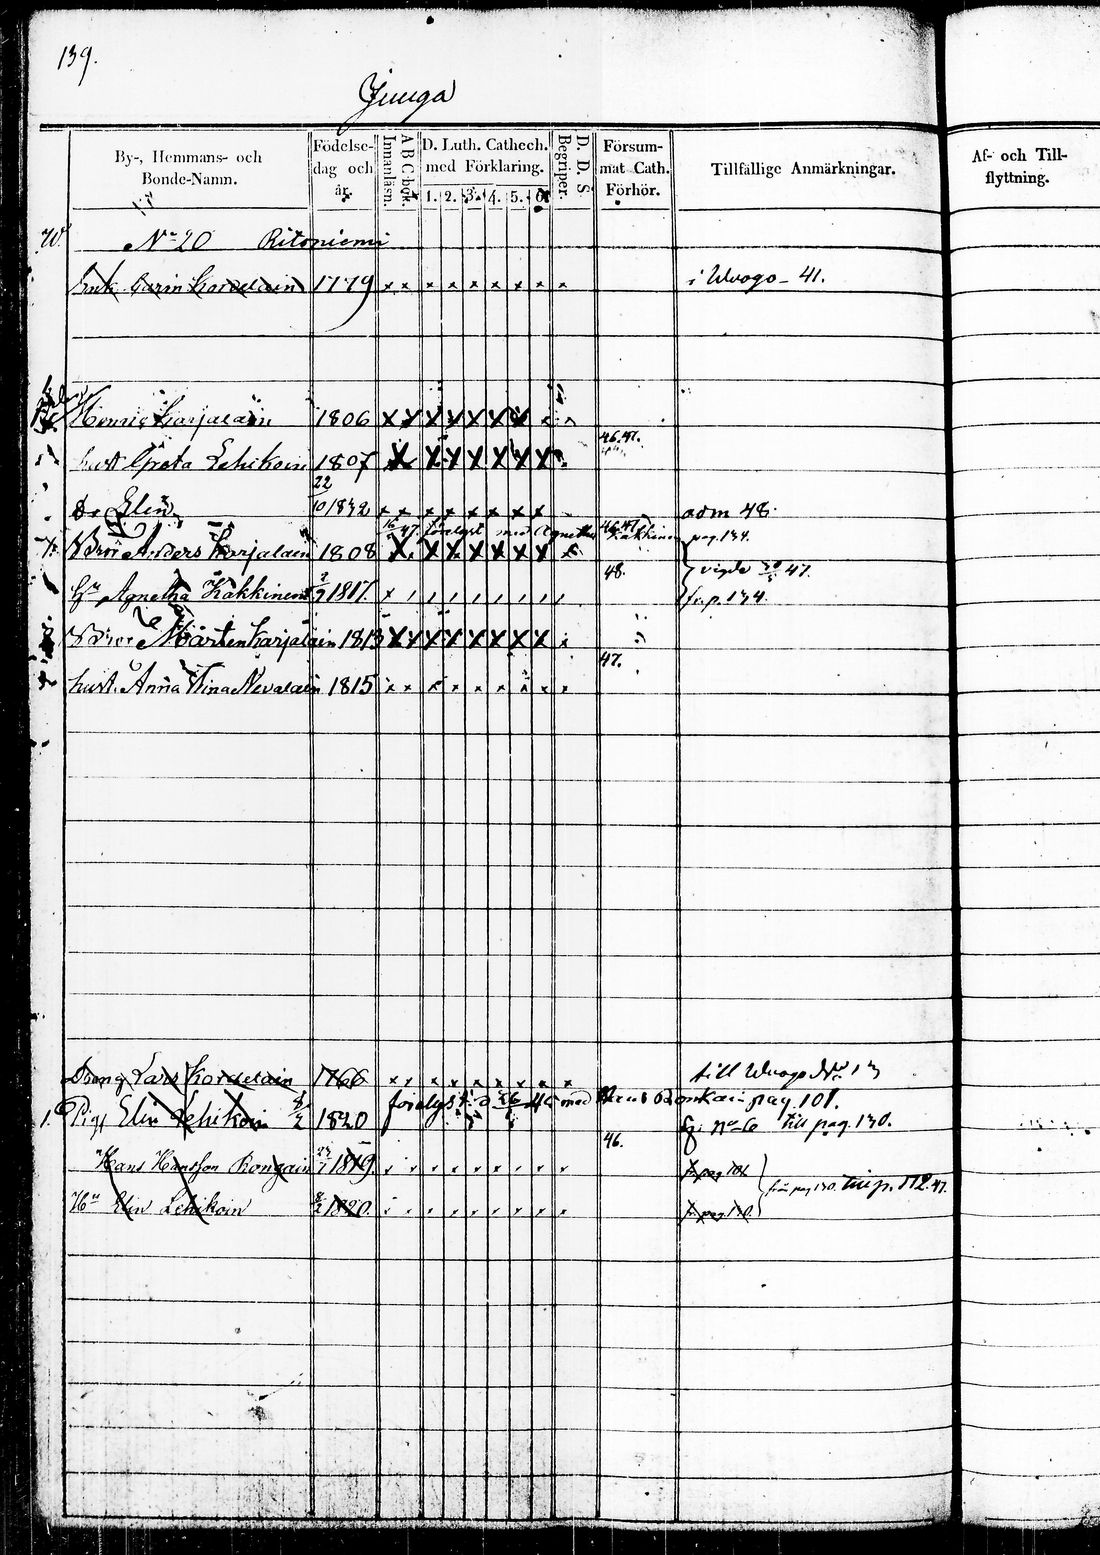 139.
Juuga
By-, Hemmans- och Bonde-Namn.
Födelse-dag och år.
Innanläsn.
A B C-bok.
D. Luth. Cathech. med Förklaring.
1. 2. 3. 4. 5. 6.
Begriper.
D. D. S.
Försum-mat Cath. Förhör.
Tillfällige Anmärkningar.
Af- och Till-flyttning.
No 20 Ritoniemi
Enk. Carin Kordelain 1779 x x x x x x x x x i Uvago - 41.
Henric Karjalain 1806 x x x x x x x
46.47.
hust. Greta Lehikoin 1807 x x x x x x x
22/10 1832 x x x x x x x x adm 48.
Elin
16/5 47. förelyst med Agnetha Kakkinen pag. 134.
46.47.
Bror Anders Karjalain 1808 x x x x x x x
48. vigde 47.
Hu Agnetha Kakkinen 1817. fr. p. 134.
Bror Mårten Karjalain 1813 x x x x x x x x x
47.
hust. Anna Stina Nevalain 1815 x x x x x x x x x
Dräng Lars Kordelain 1766 x x x x x x x x x till Uvago No 13
förelyst d 26 med pag. 101.
1. Pig. Elin Lehikoin 8/2 1820 No 6 till pag. 130.
46.
Hans Hansson 1819. fr. pag. 101
från pag 130. till p. 112. 47.
Hu Elin Lehikoin 8/2 1820. fr. pag. 130.